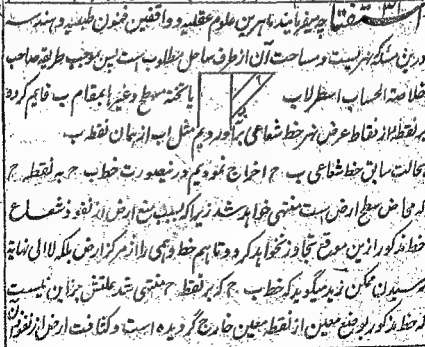 استفتا چه میفرمایند ماهرین علوم عقلیه و واقفین فنون طبیعیه و هندسه
درین مسئله که نهر نیست و مساحت آن از طرف ساحل مطلوب است پس بموجب طریقه صاحب
خلاصة الحساب اسطرلاب یا تخته مسطح وغیرا بمقام ب قایم کرده
بر نقطه ا از نقاط عرض نهر خط شعاعی بر آوردیم مثل ا ب از همان نقطه ب
بحالت سابق خط شعاعی ب ج اخراج نمودیم درینصورت خط ب ج بر نقطه ج
که محاض سطح ارض ست منتهی خواهد شد زیرا که بسبب کثافت ارض از نفوذ شعاع
خط مذکور ازین موقع تجاوز نخواهد کرد و تا هم خط وهمی را از مرکز ارض بلکه لا الی نهایة
رسیدن ممکن زید میگوید که خط ب ج که بر نقطه ج منتهی شد علتش جز این نیست
که خط مذکور بوضع معین از نقطه معین خارج گردیده است و کثافت ارض از نفوذش